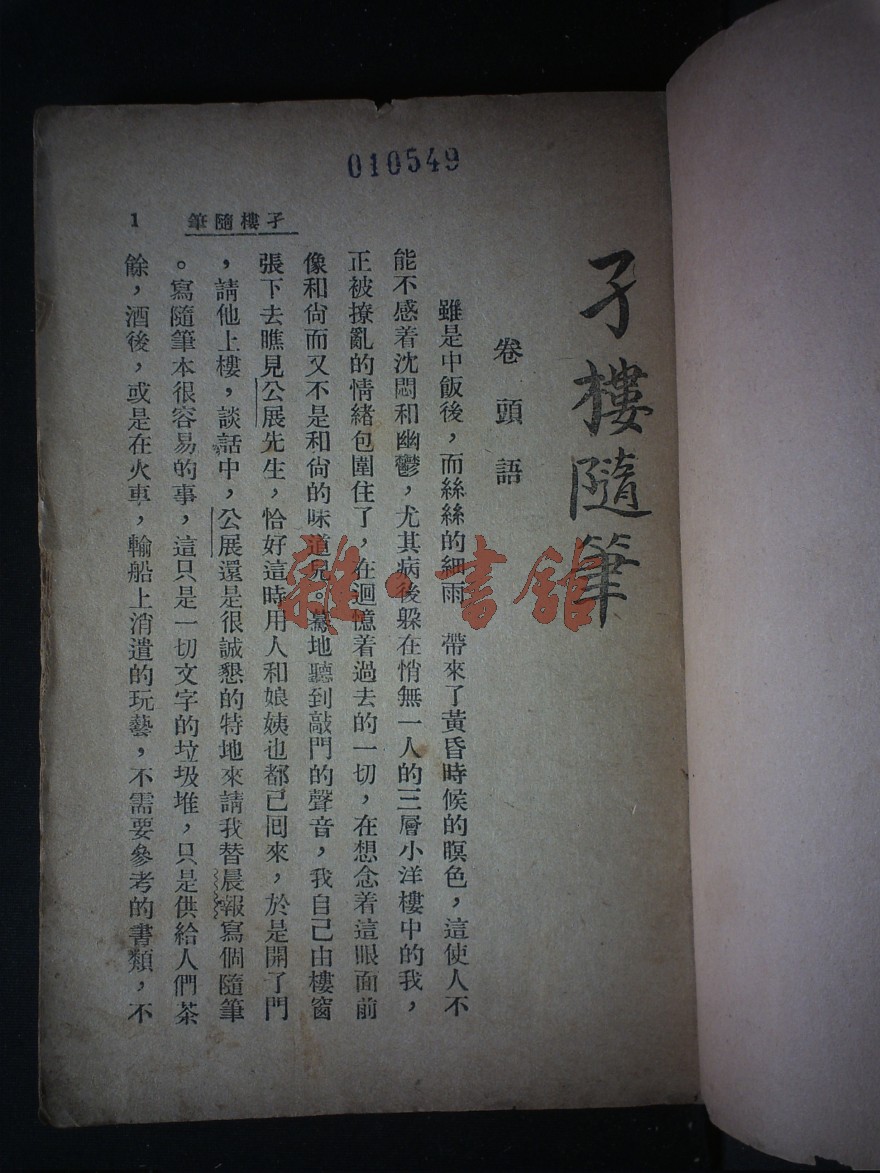 010549
孑樓隨筆
卷頭語
雖是中飯後，而絲絲的細雨　帶來了黃昏時候的暝色，這使人不
能不感着沈悶和幽鬱，尤其病後躲在悄無一人的三層小洋樓中的我，
正被撩亂的情緒包圍住了，在迴憶着過去的一切，在想念着這眼面前
像和尙而又不是和尙的味道兒。驀地聽到敲門的聲音，我自己由樓窗
張下去瞧見公展先生，恰好這時用人和娘姨也都已囘來，於是開了門
，請他上樓，談話中，公展還是很誠懇的特地來請我替晨報寫個隨筆
。寫隨筆本很容易的事，這只是一切文字的垃圾堆，只是供給人們茶
餘，酒後，或是在火車，輪船上消遣的玩藝，不需要參考的書類，不
孑樓隨筆
1
雜·書館